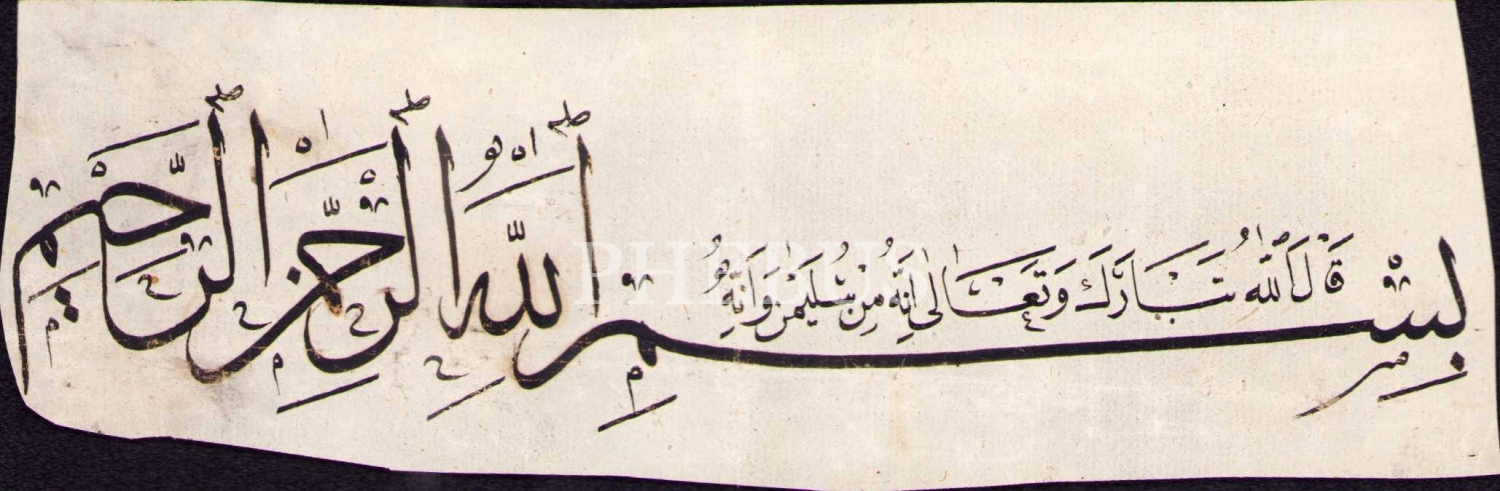 قَالَ اللّٰهُ تَبَارَكَ وَتَعَالٰى اِنَّهُ مِنْ سُلَيْمٰنَ وَاِنَّهُ
بِسْمِ اللّٰهِ الرَّحْمٰنِ الرَّحِيمِ
PHEBUS